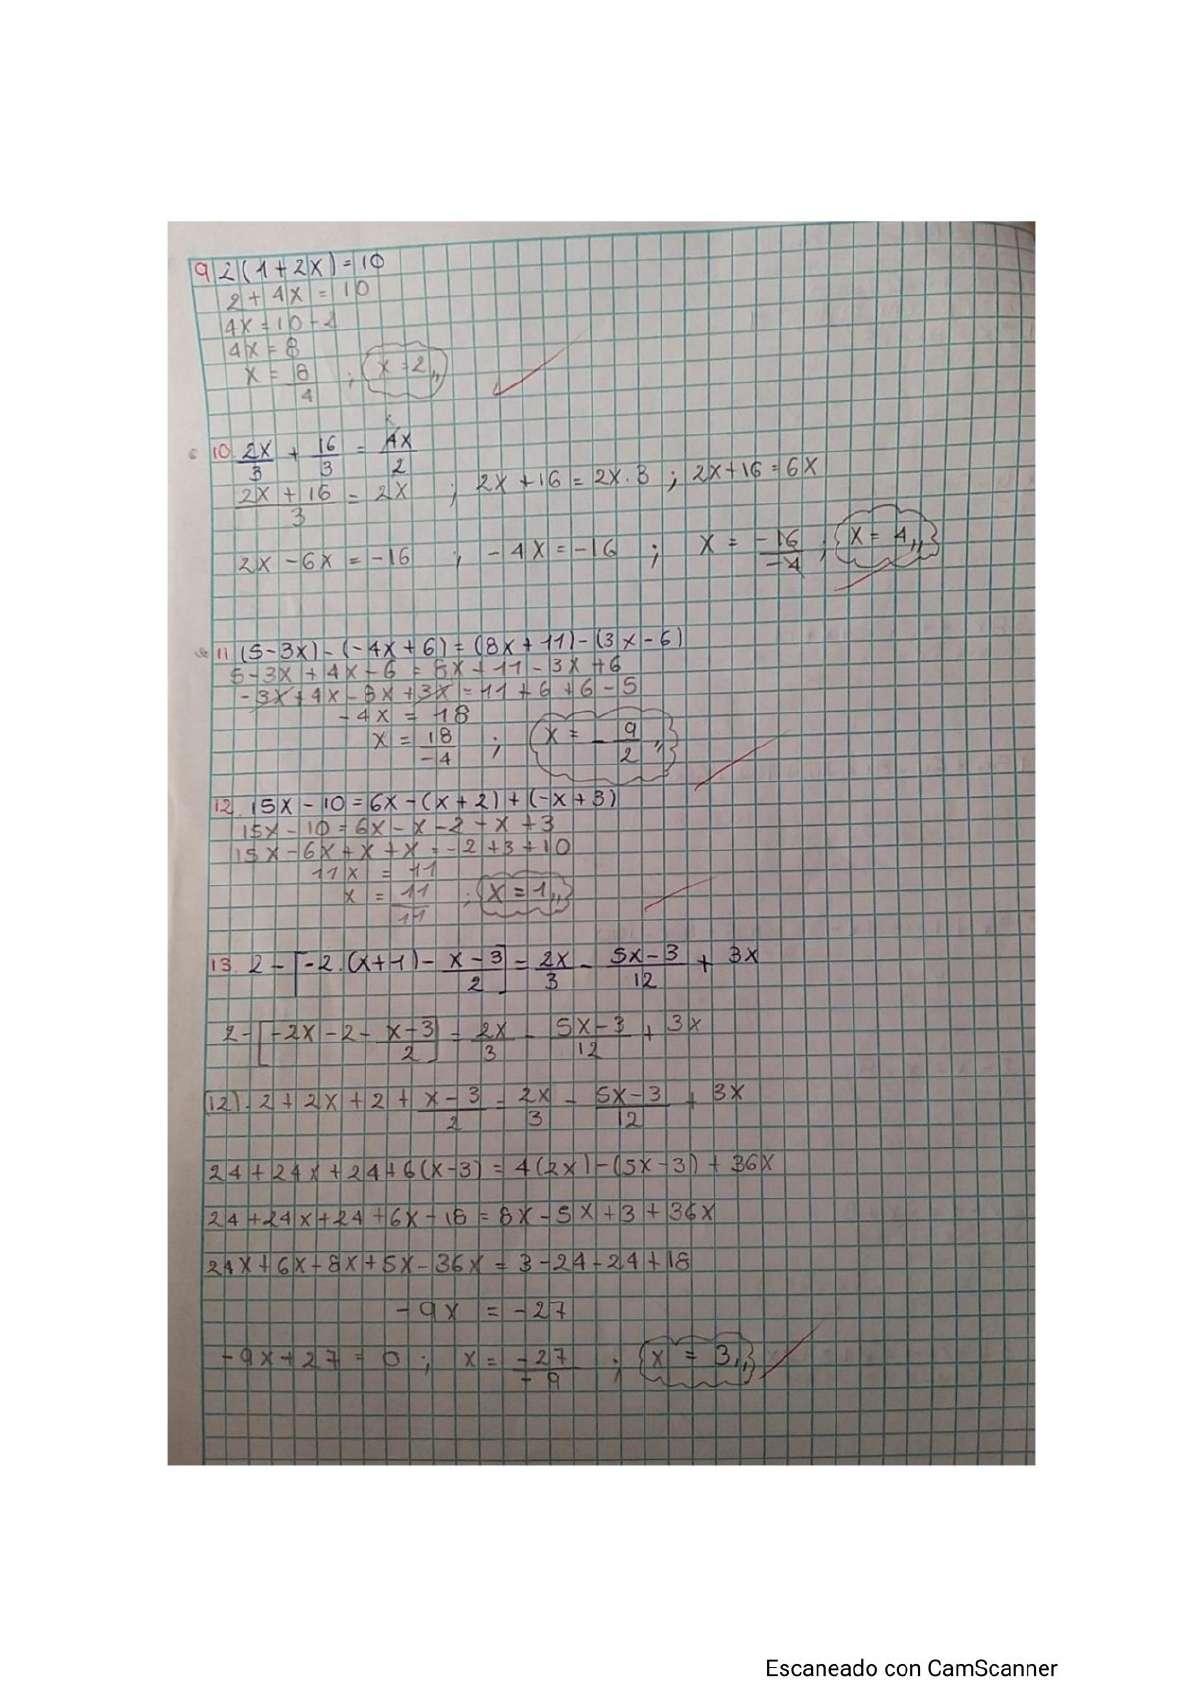 9 2(1+2x)=10
2+4x=10
4x=10-2
4x=8
x=8/4 ; x=2,,
10. 2x/3 + 16/3 = 4x/2
(2x+16)/3 = 2x ; 2x+16=2x.3 ; 2x+16=6x
2x-6x=-16 ; -4x=-16 ; x=-16/-4 ; x=4,,
11 (5-3x)-(-4x+6)=(8x+11)-(3x-6)
5-3x+4x-6=8x+11-3x+6
-3x+4x-8x+3x=11+6+6-5
-4x=18
x=18/-4 ; x=-9/2,,
12. 15x-10=6x-(x+2)+(-x+3)
15x-10=6x-x-2-x+3
15x-6x+x+x=-2+3+10
11x=11
x=11/11 ; x=1,,
13. 2-[-2.(x+1)-(x-3)/2]=2x/3-(5x-3)/12+3x
2-[-2x-2-(x-3)/2]=2x/3-(5x-3)/12+3x
(12).2+2x+2+(x-3)/2=2x/3-(5x-3)/12+3x
24+24x+24+6(x-3)=4(2x)-(5x-3)+36x
24+24x+24+6x-18=8x-5x+3+36x
24x+6x-8x+5x-36x=3-24-24+18
-9x=-27
-9x+27=0; x=-27/-9 ; x=3,,
Escaneado con CamScanner